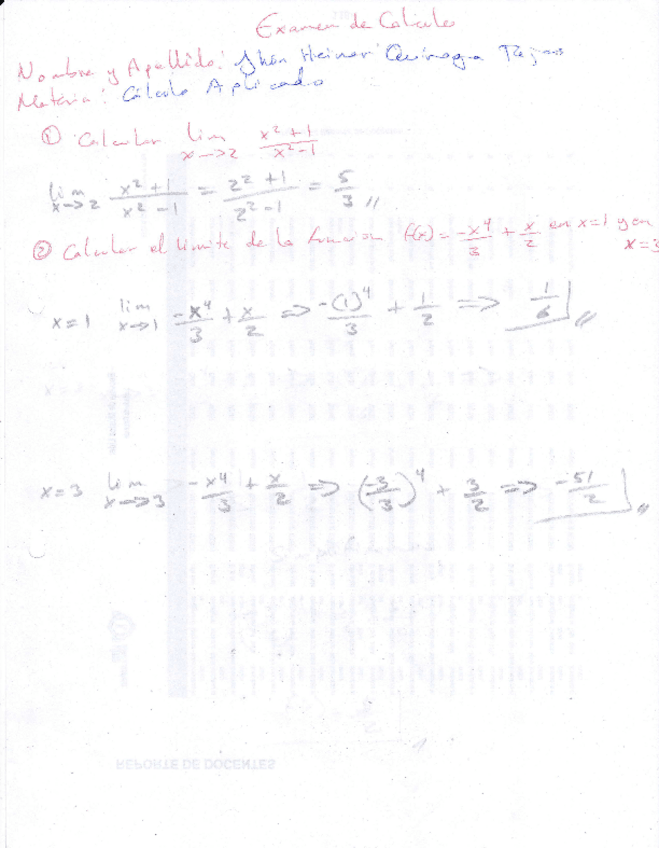 Examen de Calculo
Nombre y Apellido: Jhon Heiner Quiroga
Materia: Cálculo Aplicado
① Calcular lim x→2 x²+1/x²-1
lim x→2 x²+1/x²-1 = 2²+1/2²-1 = 5/3 //
② Calcular el limite de la funcion f(x) = -x⁴/3 + x/2 en x=1 y en
x=3
x=1 lim x→1 -x⁴/3 + x/2 => -(1)⁴/3 + 1/2 => 1/6 //
x=3 lim x→3 -x⁴/3 + x/2 => (-3/3)⁴ + 3/2 => -51/2 //
REPORTE DE DOCENTES